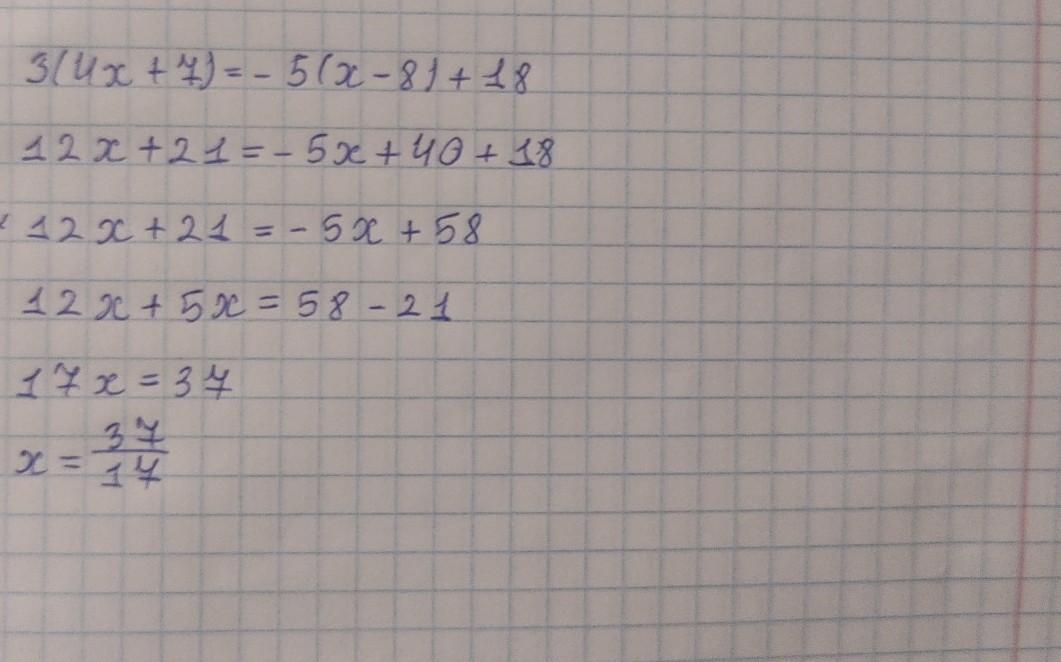 3(4x+7)=-5(x-8)+18
12x+21=-5x+40+18
12x+21=-5x+58
12x+5x=58-21
17x=37
x=37/17